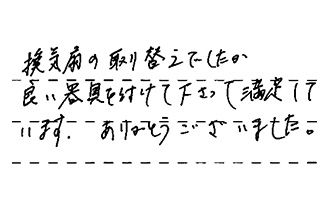 換気扇の取り替えでしたが
良い器具を付けて下さって満足して
います。ありがとうございました。